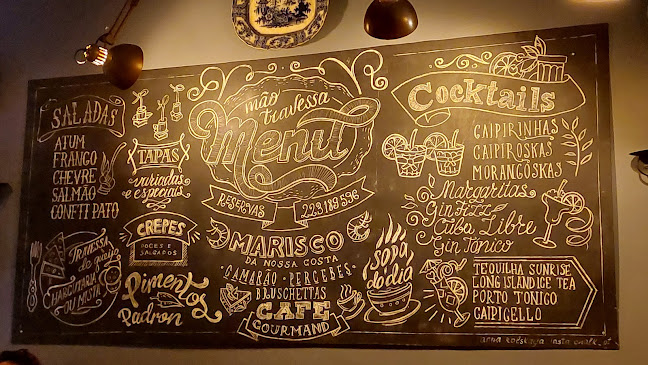 SALADAS
ATUM
FRANGO
CHEVRE
SALMÃO
CONFIT PATO
TAPAS
variadas
e especiais
CREPES
DOCES E
SALGADOS
TRAVESSA
do queijo
MARGHERITA
OU MISTA
Pimentos
Padron
mão
travessa
Menu
RESERVAS 223 189 596
MARISCO
DA NOSSA COSTA
CAMARÃO - PERCEBES
BRUSCHETTAS
CAFÉ
GOURMAND
SOPA
do dia
Cocktails
CAIPIRINHAS
CAIPIROSKAS
MORANGOSKAS
Margaritas
Gin Fizz
Cuba Libre
Gin Tónico
TEQUILHA SUNRISE
LONG ISLAND ICE TEA
PORTO TONICO
CAIPICELLO